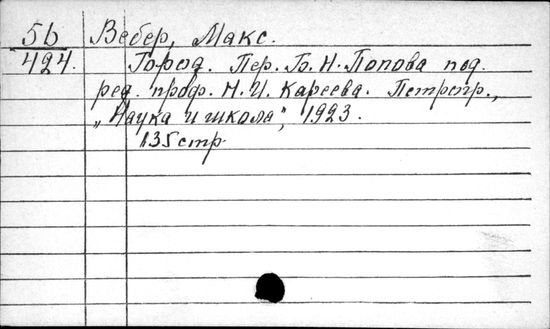 5b Вебер, Макс.
424. Город. Пер. Б. Н. Попова под.
ред. проф. Н. И. Кареева. Петрогр.,
„Наука и школа", 1923.
135 стр.